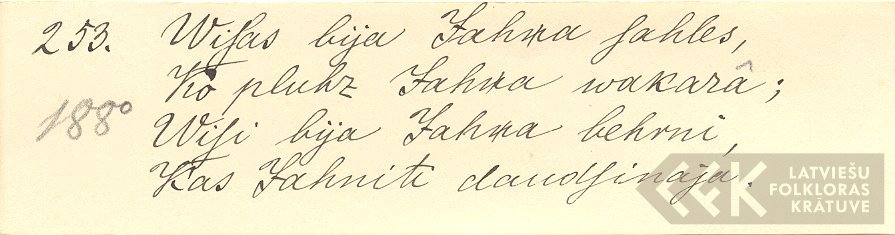 253. Wiſas bija Jahņa ſahles,
Ko pluhz Jahņa wakarâ;
188°
Wiſi bija Jahņa behrni,
Kas Jahniti daudſinaja.
LATVIEŠU
FOLKLORAS
KRĀTUVE